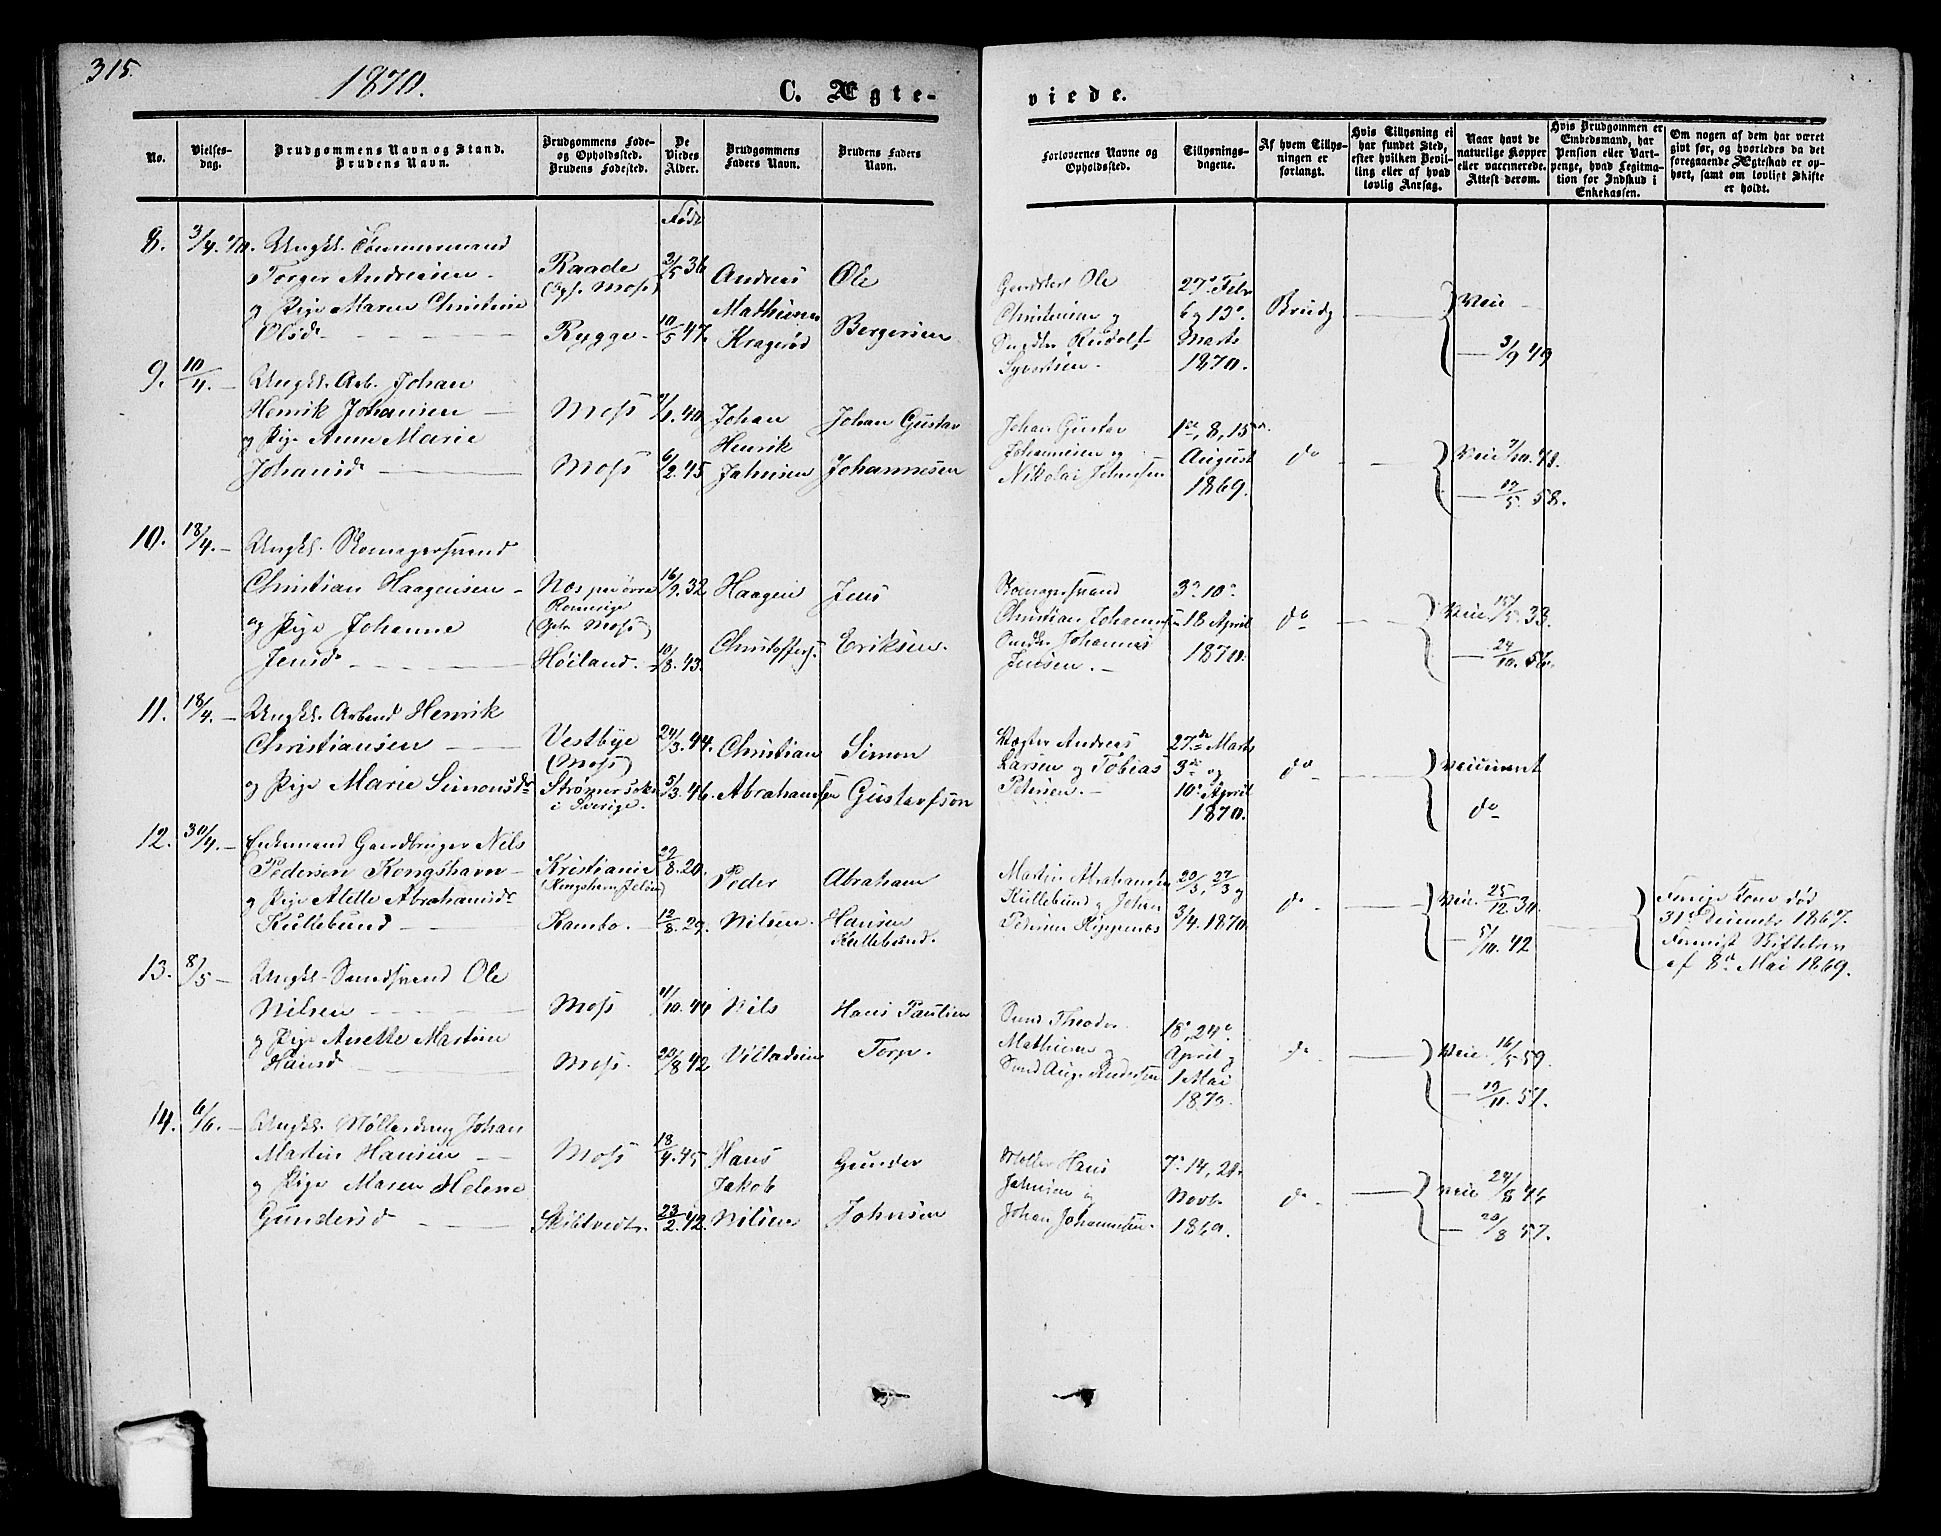 315.
1870.
C. Ægte-
viede.
No.
Vielses-
dag.
Brudgommens Navn og Stand.
Brudens Navn.
Brudgommens Føde-
og Opholdssted.
Brudens Fødested.
De
Viedes
Alder.
Brudgommens
Faders Navn.
Brudens Faders
Navn.
Forlovernes Navne og
Opholdsted.
Tillysnings-
dagene.
Af hvem Tillys-
ningen er
forlangt.
Hvis Tillysning ei
har fundet Sted,
efter hvilken Bevil-
ling eller af hvad
lovlig Aarsag.
Naar havt de
naturlige Kopper
eller vaccinerede.
Attest derom.
Hvis Brudgommen er
Embedsmand, har
Pension eller Vart-
penge, hvad Legitima-
tion for Indskud i
Enkekassen.
Om nogen af dem har været
givt før, og hvorledes da det
foregaaende Ægteskab er op-
hørt, samt om lovligt Skifte
er holdt.
Født
8. 3/4. 70. Ungkl. Tømmermand
Torger Andreasen
og Pige Maren Christine
Olsd.
Raade
Moss)
Rygge
2/5 36
10/5 47.
Andreas
Mathiesen
Kragerød
Ole
Bergersen
Gaardbr. Ole
Christensen og
Snedker Rudolf
Syvertsen.
27. Febr
6 og 13.
Marts
1870.
Brudg
Vac.
3/9 49
9. 10/4. Ungkl. Arb. Johan
Henrik Johansen
og Pige Anne Marie
Johansd.
Moss
Moss
40
6/2. 45
Johan
Henrik
Jahnsen
Johan Gustav
Johannesen
Johan Gustav
Johannesen og
Nikolai Johnsen
1ste, 8, 15de
August
1869.
do
Vac. 7/10. 41.
17/5. 58.
10. 18/4. Ungkl. Skomagersvend
Christian Haagensen
og Pige Johanne
Jensd.
Næs
Romerige
Moss)
Høiland.
16/9. 32
10/8. 43.
Haagen
Christoffers.
Jens
Eriksen.
Skomagersvend
Christian Johannes
Johannes
Jensen.
3. 10.
18 April
1870.
do
Vac. 15/5. 33.
24/10. 56.
11. 18/4. Ungkl. Arbmd Henrik
Christiansen
og Pige Marie Simonsdr
Vestbye
(Moss)
Strømer sokn
i Sverige.
24/3. 44.
5/3. 46.
Christian
Abrahamsen
Simon
Gustafson
Vægter Andreas
Larsen og Tobias
Petersen.
27de Marts
3die og
10. April
1870.
do
Vaccineret
do
12. 30/4. Enkemand Gaardbruger Nils
Pedersen Kongshavn
og Pige Alette Abrahamsdr
Kullebund
Kristiania
Kambo.
22/8. 20.
12/8. 29.
Peder
Nilsen
Abraham
Hansen
Kullebund.
Martin Abrahamsen
Kullebund og Johan
Petersen Kippenæs
20/3, 27/3 og
3/4. 1870.
do
Vac. 25/12. 30.
5/10. 42
Forrige Kone død
31. Decemb. 1867.
Fremvist Skiftebrev
af 8. Mai 1869.
13. 8/5 Ungkl. Smedsvend Ole
Nilsen
og Pige Anette Martine
Hansd.
Moss
Moss.
10. 44
20/8 42
Nils
Villadsen
Hans Paulsen
Torp.
Smed Theodor
Mathisen og
Smed Aug. Andersen
18., 24.
April og
1 Mai
1870.
do
Vac. 16/5. 59.
19/11. 57.
14. 6/6. Ungkl. Møllerdreng Johan
Martin Hansen
og Pige Maren Helene
Gundersd.
Moss
Skibtvedt.
18/4. 45
23/2. 42.
Hans
Jakob
Nilsen
Gunder
Johnsen
Møller Hans
Jahnsen og
Johan Johannesen.
7. 14, 21.
Novb.
1869.
do
Vac. 24/8 46
20/8 57.